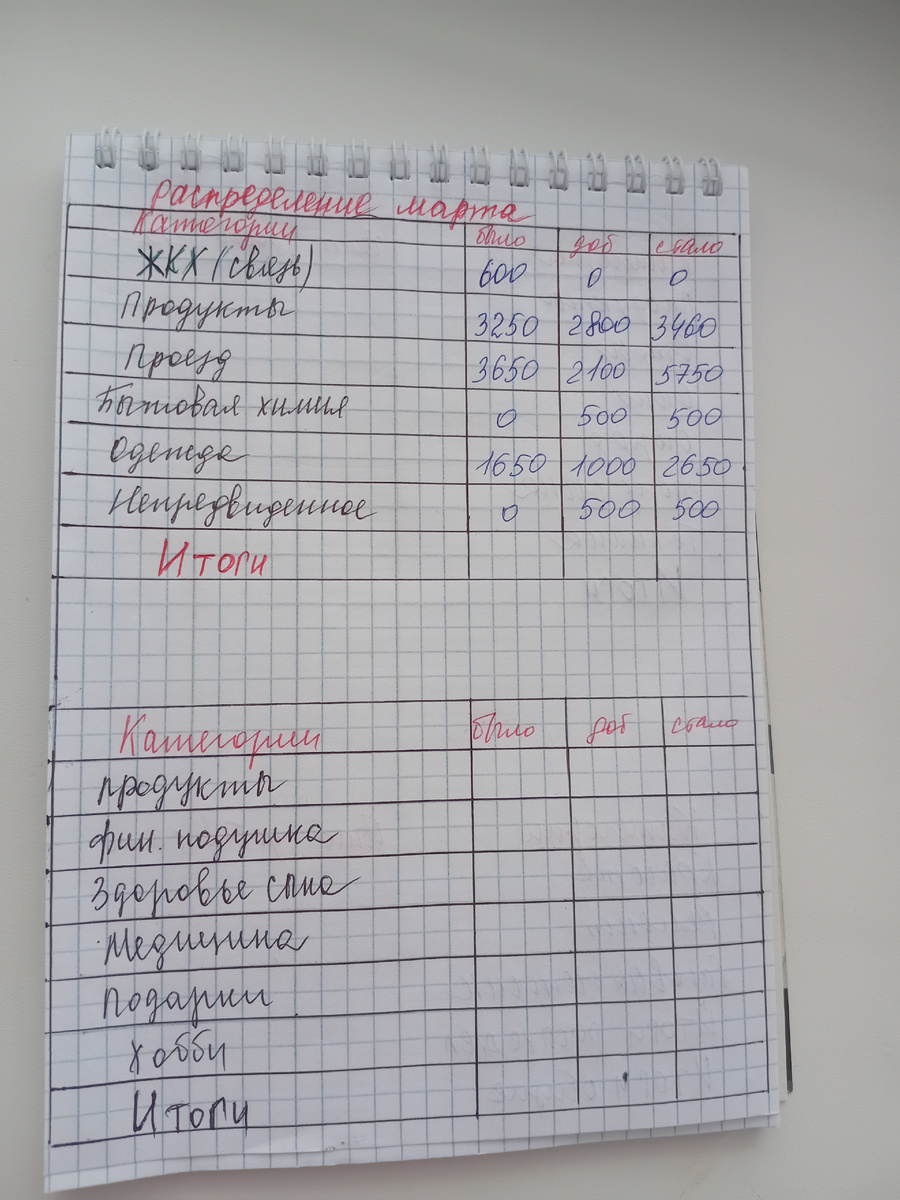 Распределение марта
Категории было доб стало
ЖКХ (связь) 600 0 0
Продукты 3250 2800 3460
Проезд 3650 2100 5750
Бытовая химия 0 500 500
Одежда 1650 1000 2650
Непредвиденное 0 500 500
Итоги
Категории было доб стало
продукты
фин. подушка
Здоровье сына
Медицина
подарки
хобби
Итоги